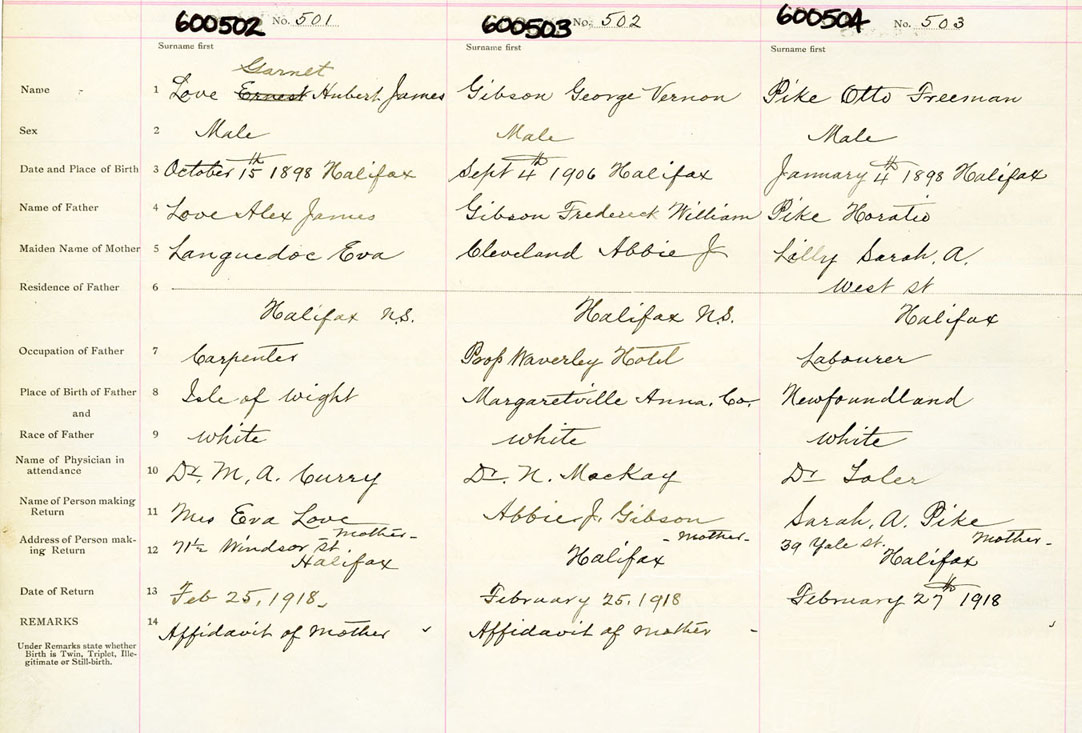 600502 No. 501 600503 No. 502 600504 No. 503
Surname first Surname first Surname first
Garnet
Name 1 Love Ernest Hubert James Gibson George Vernon Pike Otto Freeman
Sex 2 Male Male Male
Date and Place of Birth 3 October 15th 1898 Halifax Sept 4th 1906 Halifax January 4th 1898 Halifax
Name of Father 4 Love Alex James Gibson Frederick William Pike Horatio
Maiden Name of Mother 5 Languedoc Eva Cleveland Abbie J Lilly Sarah. A.
Residence of Father 6 West st
Halifax N.S. Halifax N.S. Halifax
Occupation of Father 7 Carpenter Prop Waverley Hotel Labourer
Place of Birth of Father 8 Isle of Wight Margaretville Anna. Co. Newfoundland
and
Race of Father 9 White White White
Name of Physician in
attendance 10 Dr. M. A. Curry Dr. N. MacKay Dr
Name of Person making
Return 11 Mrs Eva Love Abbie J. Gibson Sarah. A. Pike
Mother - - Mother - Mother -
Address of Person mak-
ing Return 12 71½ Windsor St. Halifax Halifax 39 Yale st. Halifax
Date of Return 13 Feb 25, 1918. February 25, 1918 February 27th 1918
REMARKS 14 Affidavit of Mother Affidavit of Mother
Under Remarks state whether
Birth is Twin, Triplet, Ille-
gitimate or Still-birth.